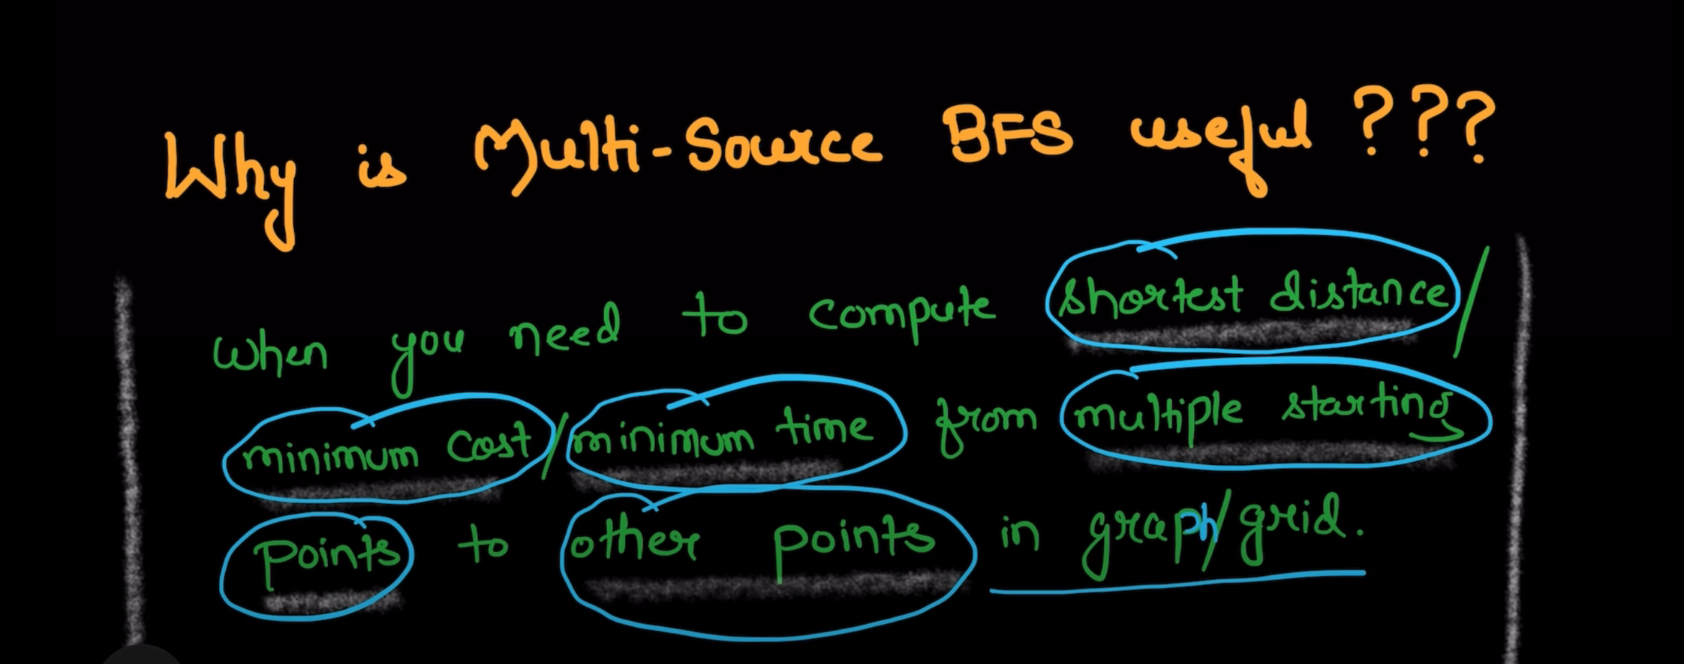 Why is Multi-Source BFS useful ???
When you need to compute shortest distance/
minimum cost/minimum time from multiple starting
points to other points in graph/grid.